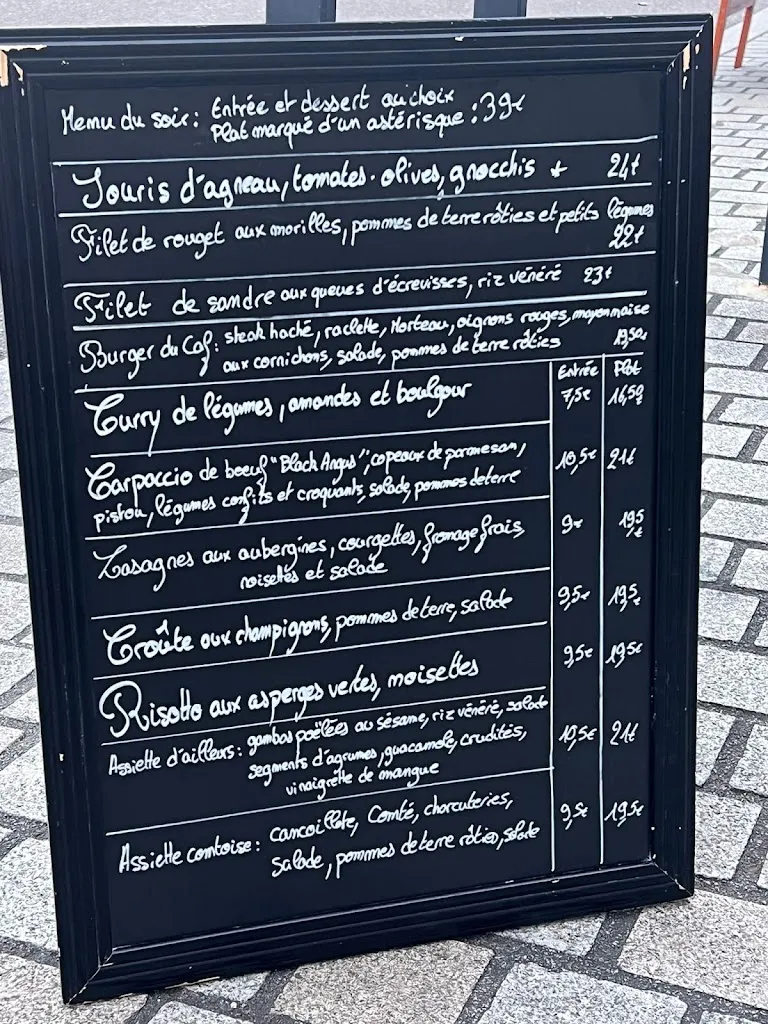 Menu du soir: Entrée et dessert au choix
Plat marqué d'un astérisque : 39€
Souris d'agneau, tomates. olives, gnocchis * 24€
Filet de rouget aux morilles, pommes de terre rôties et petits légumes
22€
Filet de sandre aux queues d'écrevisses, riz vénéré 23€
Burger du Caf: steak haché, raclette, Morteau, oignons rouges, mayonnaise
aux cornichons, salade, pommes de terre rôties 19,50€
Entrée Plat
Curry de légumes, amandes et boulgour 7,5€ 16,50€
Carpaccio de boeuf "Black Angus", copeaux de parmesan,
pistou, légumes confits et croquants, salade, pommes de terre 10,5€ 21€
Lasagnes aux aubergines, courgettes, fromage frais,
noisettes et salade 9€ 19,5€
Croûte aux champignons, pommes de terre, salade 9,5€ 19,5€
Risotto aux asperges vertes, noisettes 9,5€ 19,5€
Assiette d'ailleurs: gambas poêlées au sésame, riz vénéré, salade
segments d'agrumes, guacamole, crudités, 10,5€ 21€
vinaigrette de mangue
Assiette comtoise: cancoillotte, Comté, charcuteries, 9,5€ 19,5€
salade, pommes de terre rôties, salade